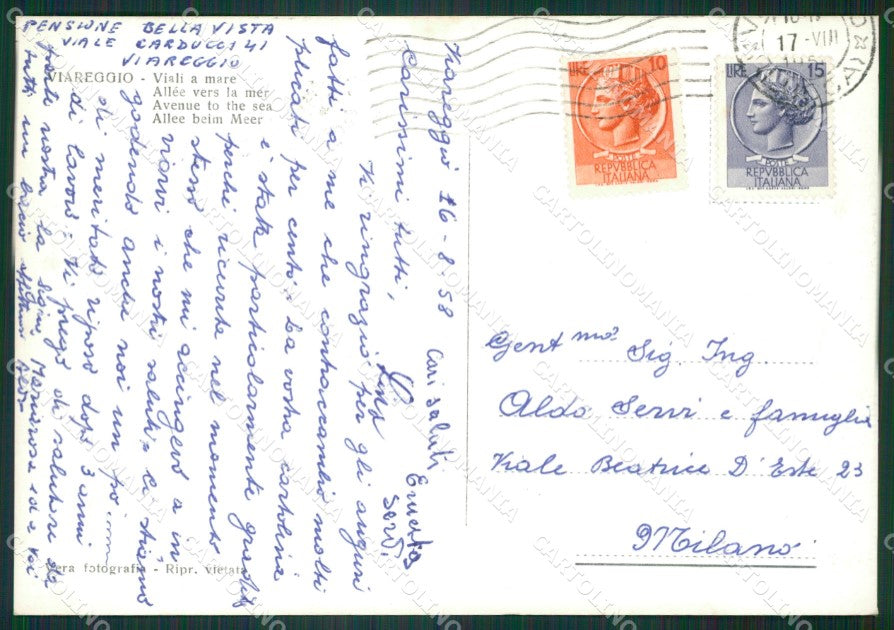 PENSIONE BELLA VISTA
VIALE CARDUCCI 41
VIAREGGIO
VIAREGGIO - Viali a mare
Allée vers la mer
Avenue to the sea
Allee beim Meer
Viareggio 16-8.58
Carissimi tutti,
Vi ringrazio per gli auguri
fatti a me che contraccambio molti
plicati per cento. La vostra cartolina
è stata particolarmente gradita
perchè ricevuta nel momento
stesso che mi accingevo a in
viarvi i nostri saluti. Ci stiamo
godendo anche noi un po'
di meritato riposo dopo 3 anni
di lavoro. Vi prego di salutare da
parte nostra la sig.na Mariarosa ed a voi
tutti un bacio affettuoso Aldo
Lina
Cari saluti
Servi
Vera fotografia - Ripr. vietata
LIRE 10
POSTE
REPVBBLICA
ITALIANA
LIRE 15
POSTE
REPVBBLICA
ITALIANA
17 -VIII
Gent mo? Sig. Ing.
Aldo Servi e famiglia
Viale Beatrice D'Este 23
Milano
CARTOLINOMANIA